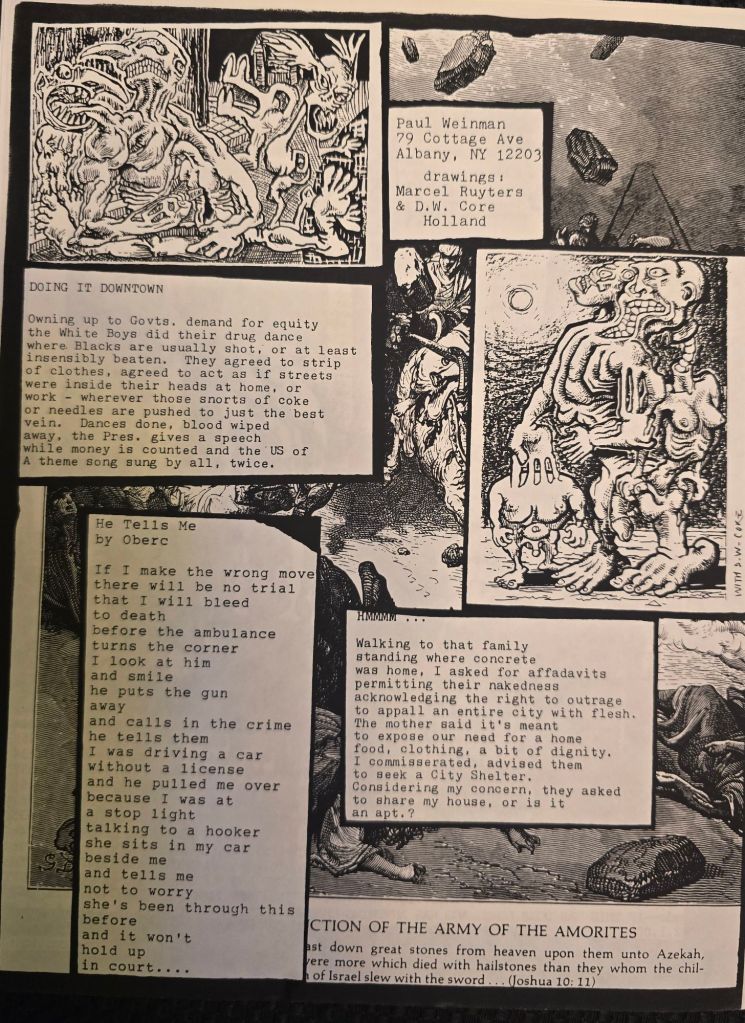 Paul Weinman
79 Cottage Ave
Albany, NY 12203
drawings:
Marcel Ruyters
& D.W. Core
Holland
DOING IT DOWNTOWN
Owning up to Govts. demand for equity
the White Boys did their drug dance
where Blacks are usually shot, or at least
insensibly beaten. They agreed to strip
of clothes, agreed to act as if streets
were inside their heads at home, or
work - wherever those snorts of coke
or needles are pushed to just the best
vein. Dances done, blood wiped
away, the Pres. gives a speech
while money is counted and the US of
A theme song sung by all, twice.
WITH D.W. CORE
He Tells Me
by Oberc
If I make the wrong move
there will be no trial
that I will bleed
to death
before the ambulance
turns the corner
I look at him
and smile
he puts the gun
away
and calls in the crime
he tells them
I was driving a car
without a license
and he pulled me over
because I was at
a stop light
talking to a hooker
she sits in my car
beside me
and tells me
not to worry
she's been through this
before
and it won't
hold up
in court....
HMMMM ...
Walking to that family
standing where concrete
was home, I asked for affadavits
permitting their nakedness
acknowledging the right to outrage
to appall an entire city with flesh.
The mother said it's meant
to expose our need for a home
food, clothing, a bit of dignity.
I commisserated, advised them
to seek a City Shelter.
Considering my concern, they asked
to share my house, or is it
an apt.?
CTION OF THE ARMY OF THE AMORITES
ast down great stones from heaven upon them unto Azekah,
were more which died with hailstones than they whom the chil-
n of Israel slew with the sword . . . (Joshua 10: 11)